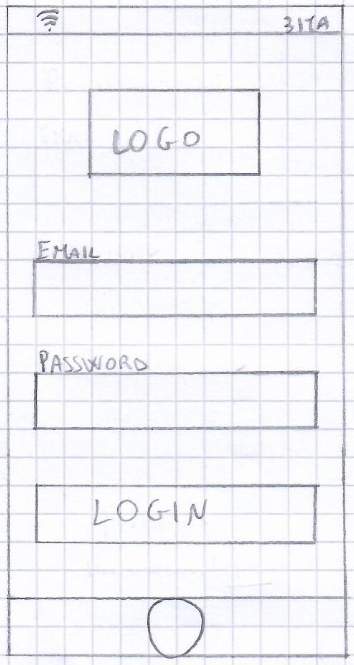 LOGO
EMAIL
PASSWORD
LOGIN